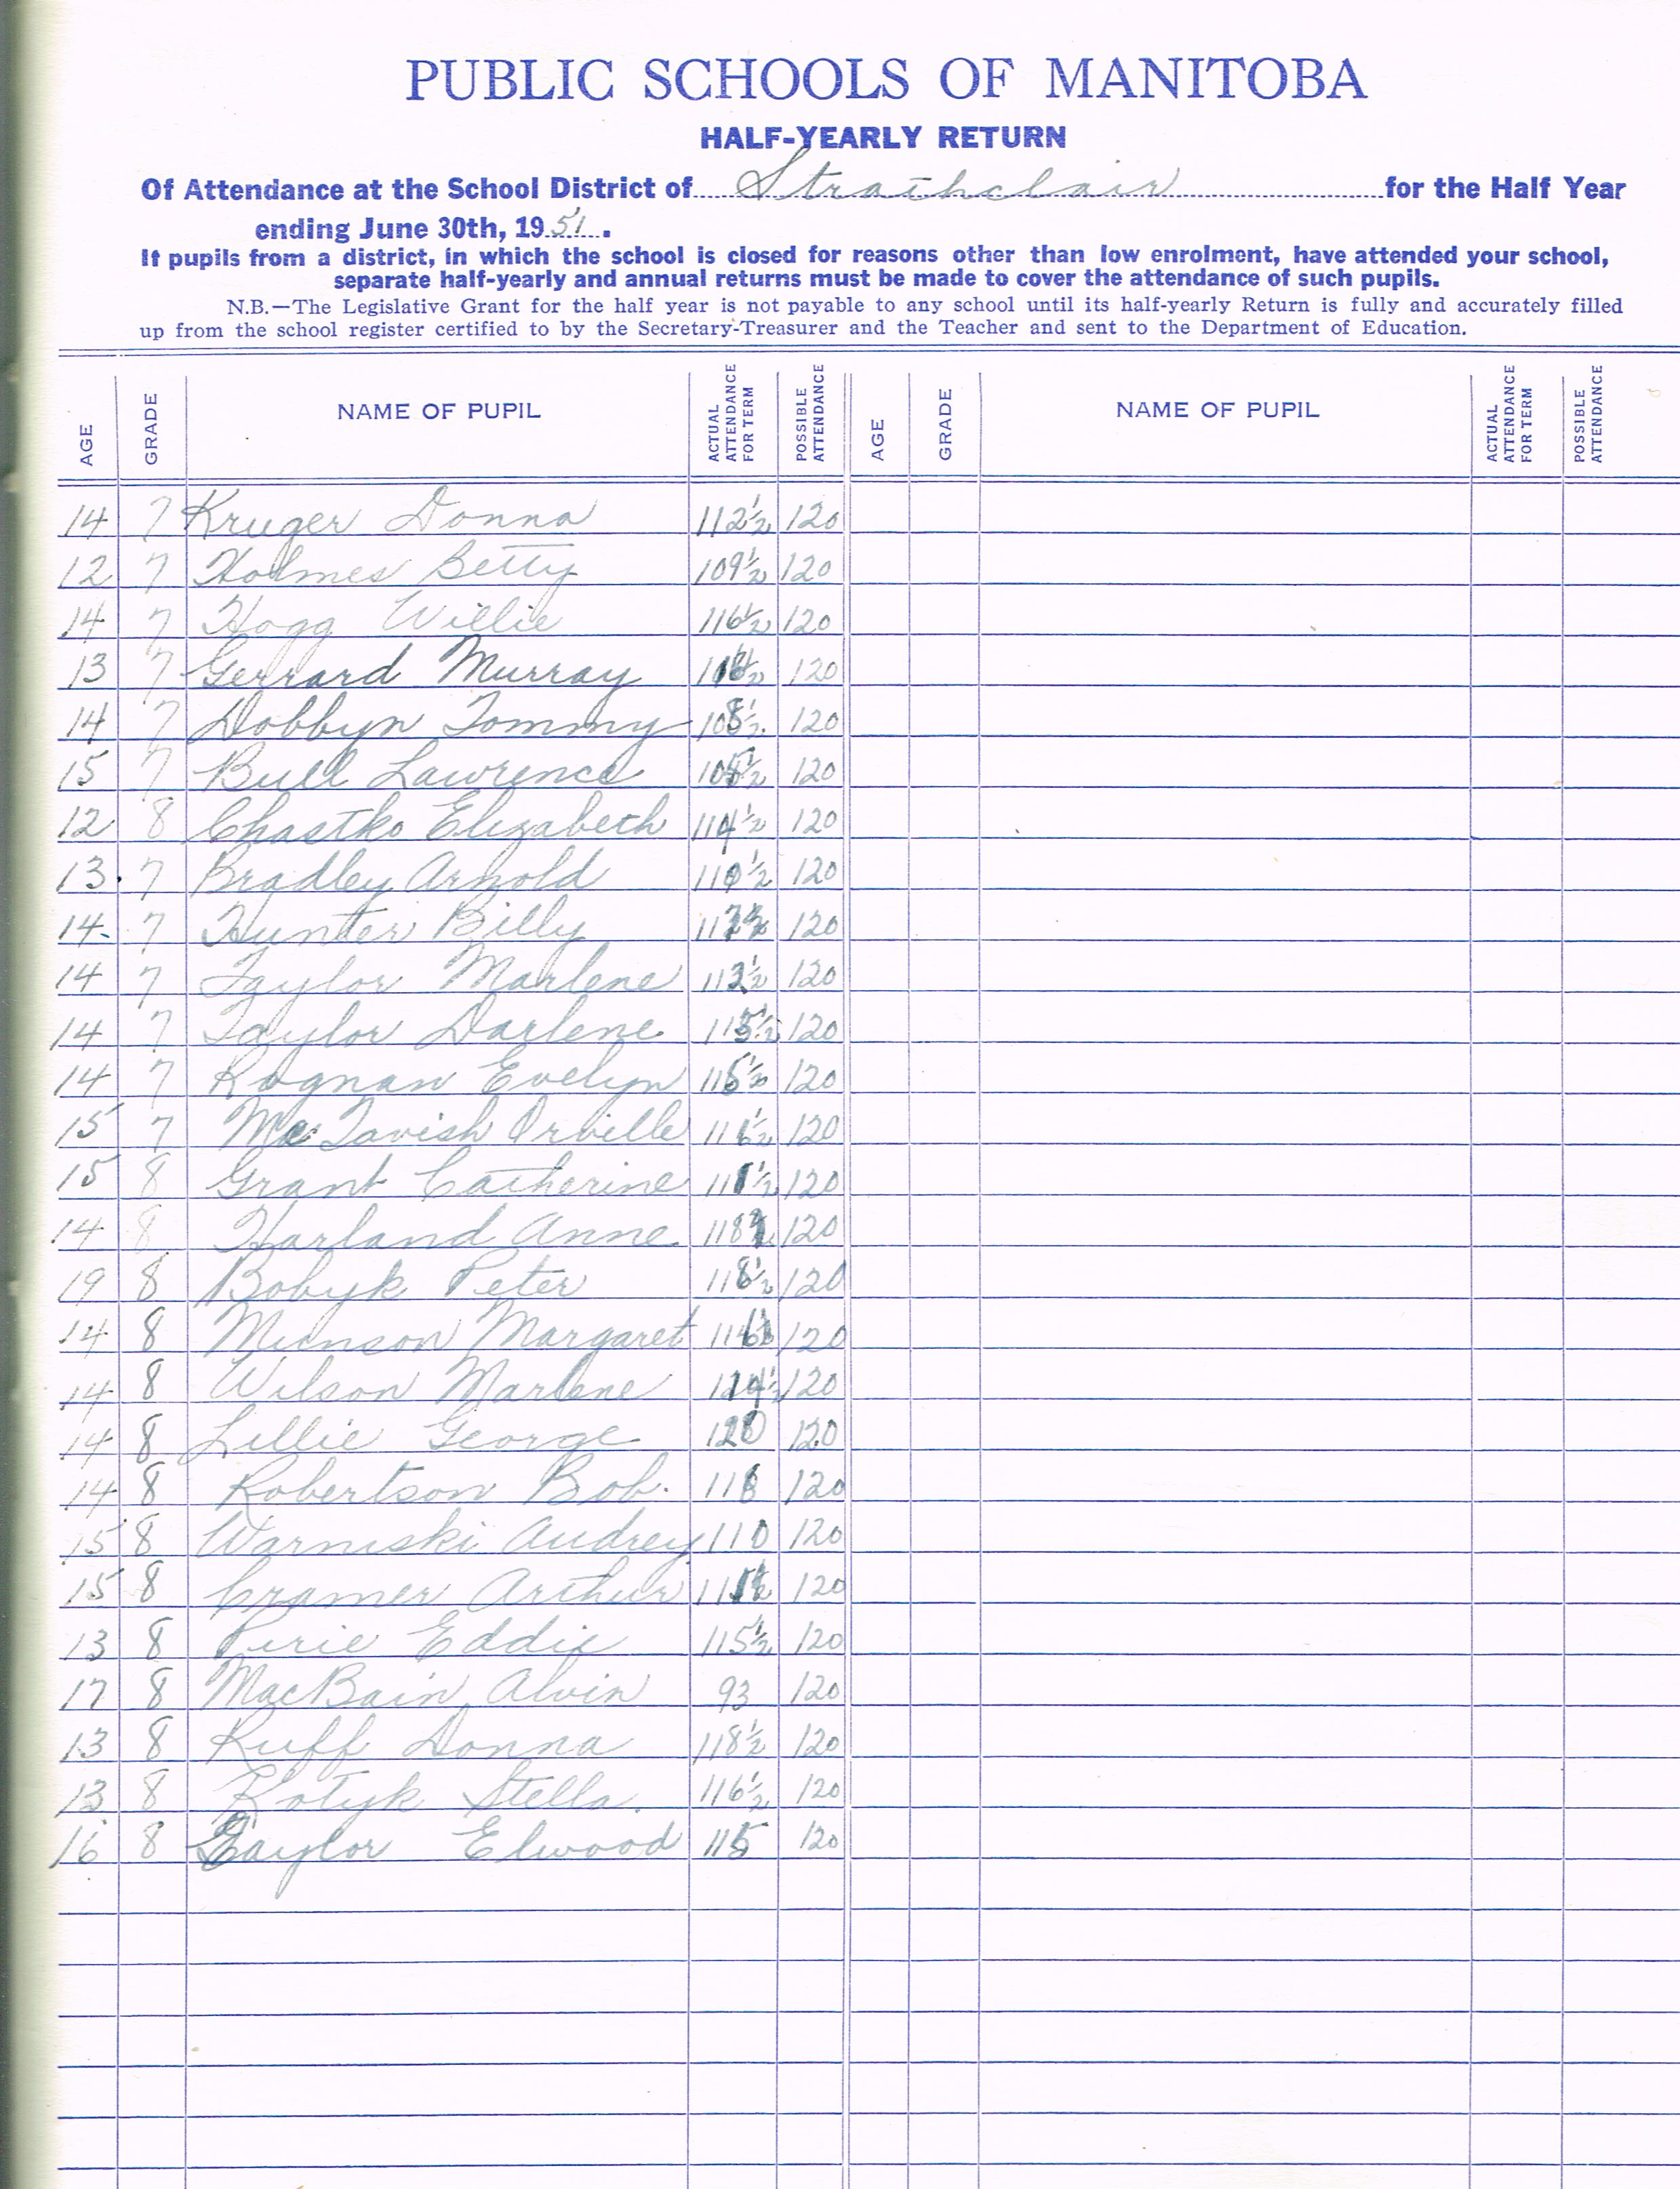 PUBLIC SCHOOLS OF MANITOBA
HALF-YEARLY RETURN
Of Attendance at the School District of Strathclair for the Half Year
ending June 30th, 1951.
If pupils from a district, in which the school is closed for reasons other than low enrolment, have attended your school,
separate half-yearly and annual returns must be made to cover the attendance of such pupils.
N.B.—The Legislative Grant for the half year is not payable to any school until its half-yearly Return is fully and accurately filled
up from the school register certified to by the Secretary-Treasurer and the Teacher and sent to the Department of Education.
AGE GRADE NAME OF PUPIL ACTUAL ATTENDANCE FOR TERM POSSIBLE ATTENDANCE AGE GRADE NAME OF PUPIL ACTUAL ATTENDANCE FOR TERM POSSIBLE ATTENDANCE
14 7 Kruger Donna 112½ 120
12 7 Holmes Betty 109½ 120
14 7 Hogg Willie 116½ 120
13 7 Gerrard Murray 120
14 7 Dobbyn Tommy 108½ 120
15 7 Bull Lawrence 120
12 8 Chastko Elizabeth 114½ 120
13 7 Bradley Arnold 110½ 120
14 7 Hunter Billy 120
14 7 Taylor Marlene 113½ 120
14 7 Taylor Darlene 115½ 120
14 7 Rognan Evelyn 120
15 7 McTavish Orville 116½ 120
15 8 Grant Catherine 120
14 8 Harland Anne 120
19 8 Bobyk Peter 118½ 120
14 8 Munson Margaret 120
14 8 Wilson Marlene 120
14 8 Lillie George 120 120
14 8 Robertson Bob. 118 120
15 8 Warniski Audrey 110 120
15 8 Cramer Arthur 120
13 8 Pirie Eddie 115½ 120
17 8 MacBain Alvin 93 120
13 8 Ruff Donna 118½ 120
13 8 Kotyk Stella. 116½ 120
16 8 Taylor Elwood 115 120